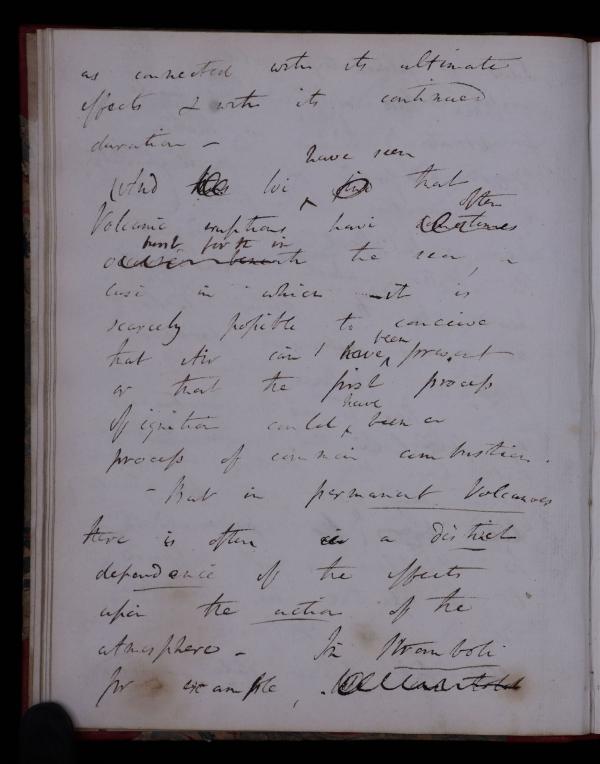 as connected with its ultimate
effects & with its continued
duration -
have seen
And we that
often
Volcanic eruptions have sometimes
burst forth in
the sea, a
case in which it is
scarcely possible to conceive
been
that Air can have present
or that the first process
have
of ignition could been a
process of common combustion.
- But in permanent Volcanoes
there is often a distinct
dependence of the effects
upon the action of the
atmosphere - In Stromboli
for example,